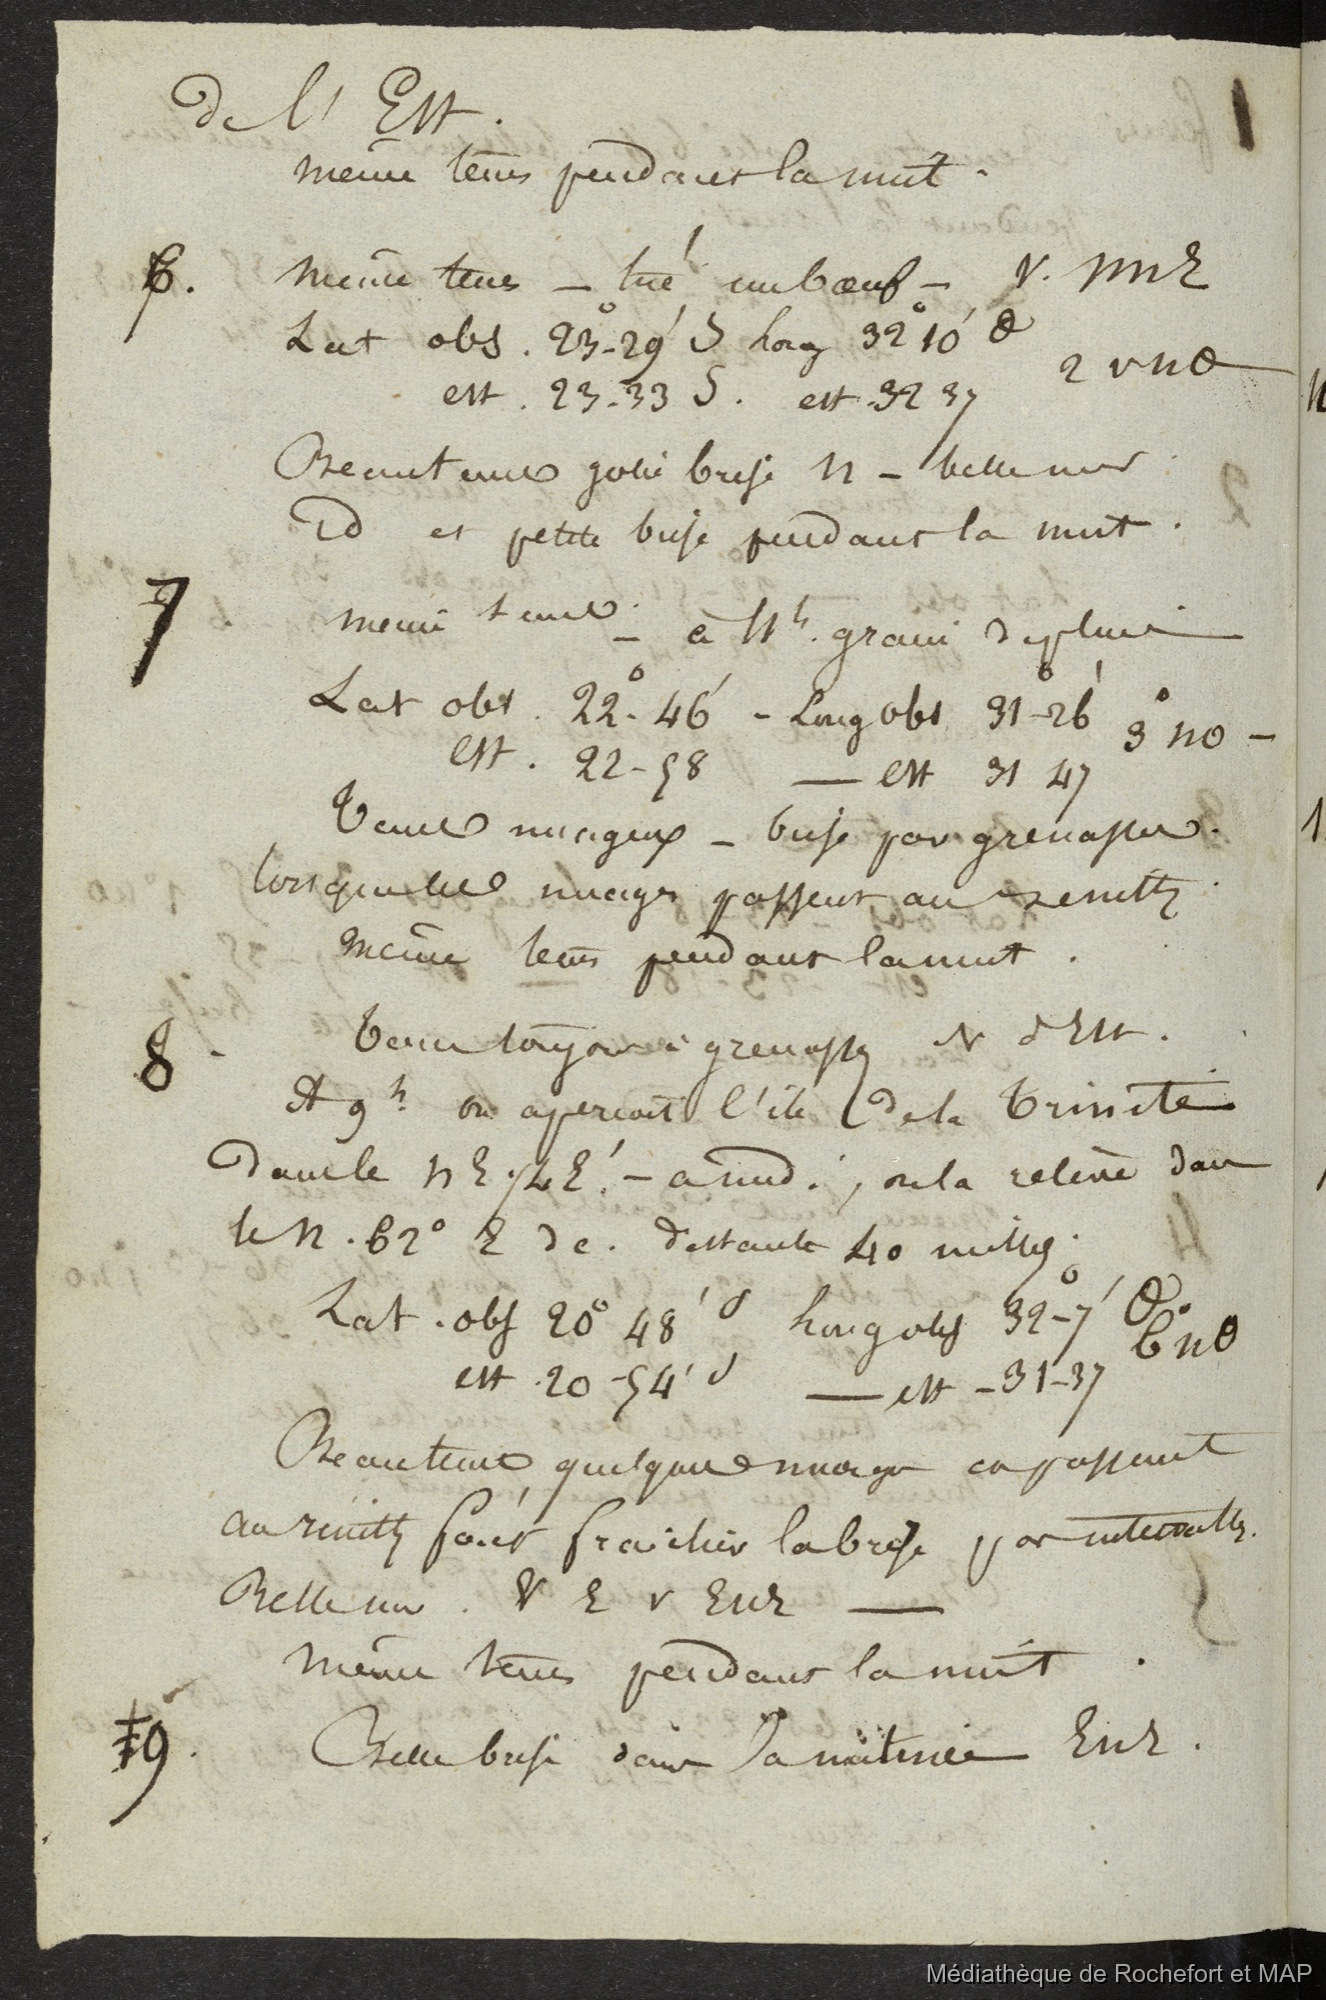 de l' Est.
même tems pendant la nuit.
6. même tems – tué un bœuf – V. NNE
Lat obs. 23°-29' S Long 32° 10' O
2 v NO
est. 23-33 S. est. 32 37
Beau tems jolie brise N – belle mer
Id et petite brise pendant la nuit.
7 même tems – à 11h. grain de pluie
Lat obs. 22°-46' - Long obs 31°-26' 3° NO –
est. 22-58 — est 31 47
Tems nuageux – brise par grenasses
lorsque les nuages passent au zenith
même tems pendant la nuit.
8 - Tems toujours à grenasses V d'Est.
A 9h. on aperçoit l'île de la Trinité
dans le NE ¼ E. – a midi, on la relève dans
le N. 62° E de. distante 40 milles.
Lat. obs 20° 48' S Long obs 32°-7' O
6° NO
est. 20-54' S — est -31-37
Beau tems quelques nuages en passant
au zenith font fraichir la brise par intervalles.
Belle mer. V E v ENE —
même tems pendant la nuit.
9. Belle brise dans la matinée ENE.
Médiathèque de Rochefort et MAP